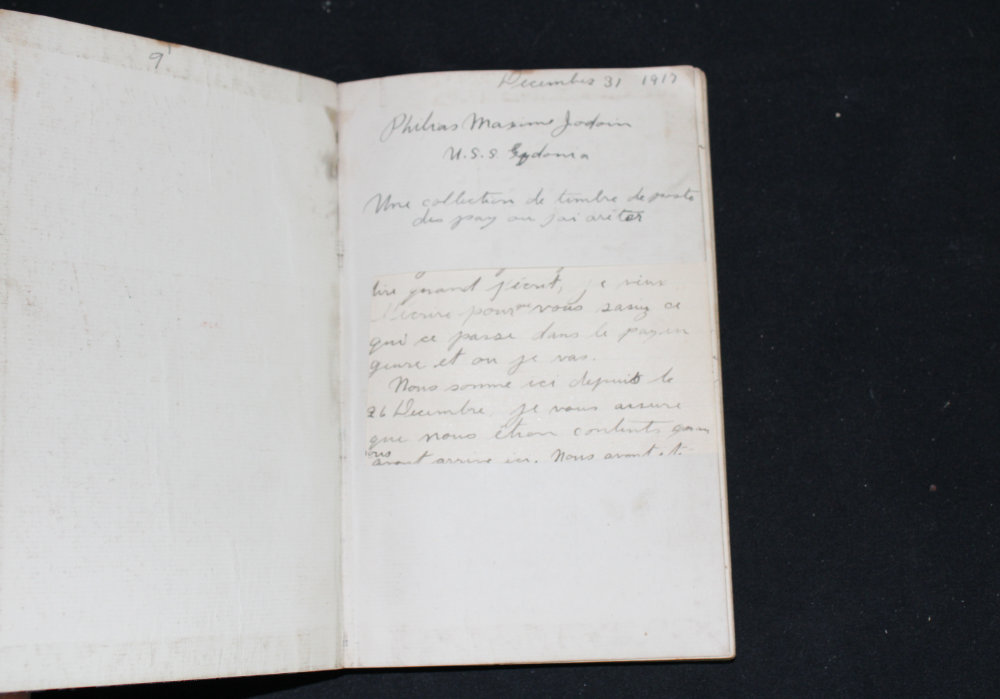 9
December 31 1917
Philias Maxime Jodoin
U.S.S.
Une collection de timbre de poste
des pay ou jai arèter
lire quand j'écrit, je viens
écrire pour vous ce
qui ce passe dans le pay en
geure et ou je vas.
Nous somme ici depuis le
26 Decembre, je vous assure
que nous étion contents quan
nous
avont arrive ici. Nous avont